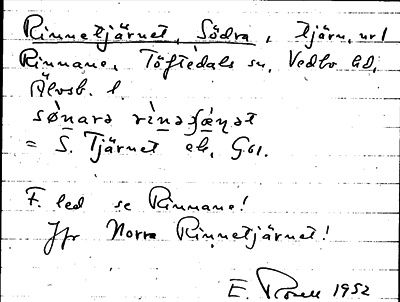 Rinnetjärnet, Södra, tjärn, nr 1
Rinnane, Töftedals sn, Vedbo hd,
Älvsb. l.
sø̀narə rìnəʃæ̀ṇət
= S. Tjärnet ek, G61.
F. led se Rinnane!
Jfr Norra Rinnetjärnet!
E. Rosell 1952